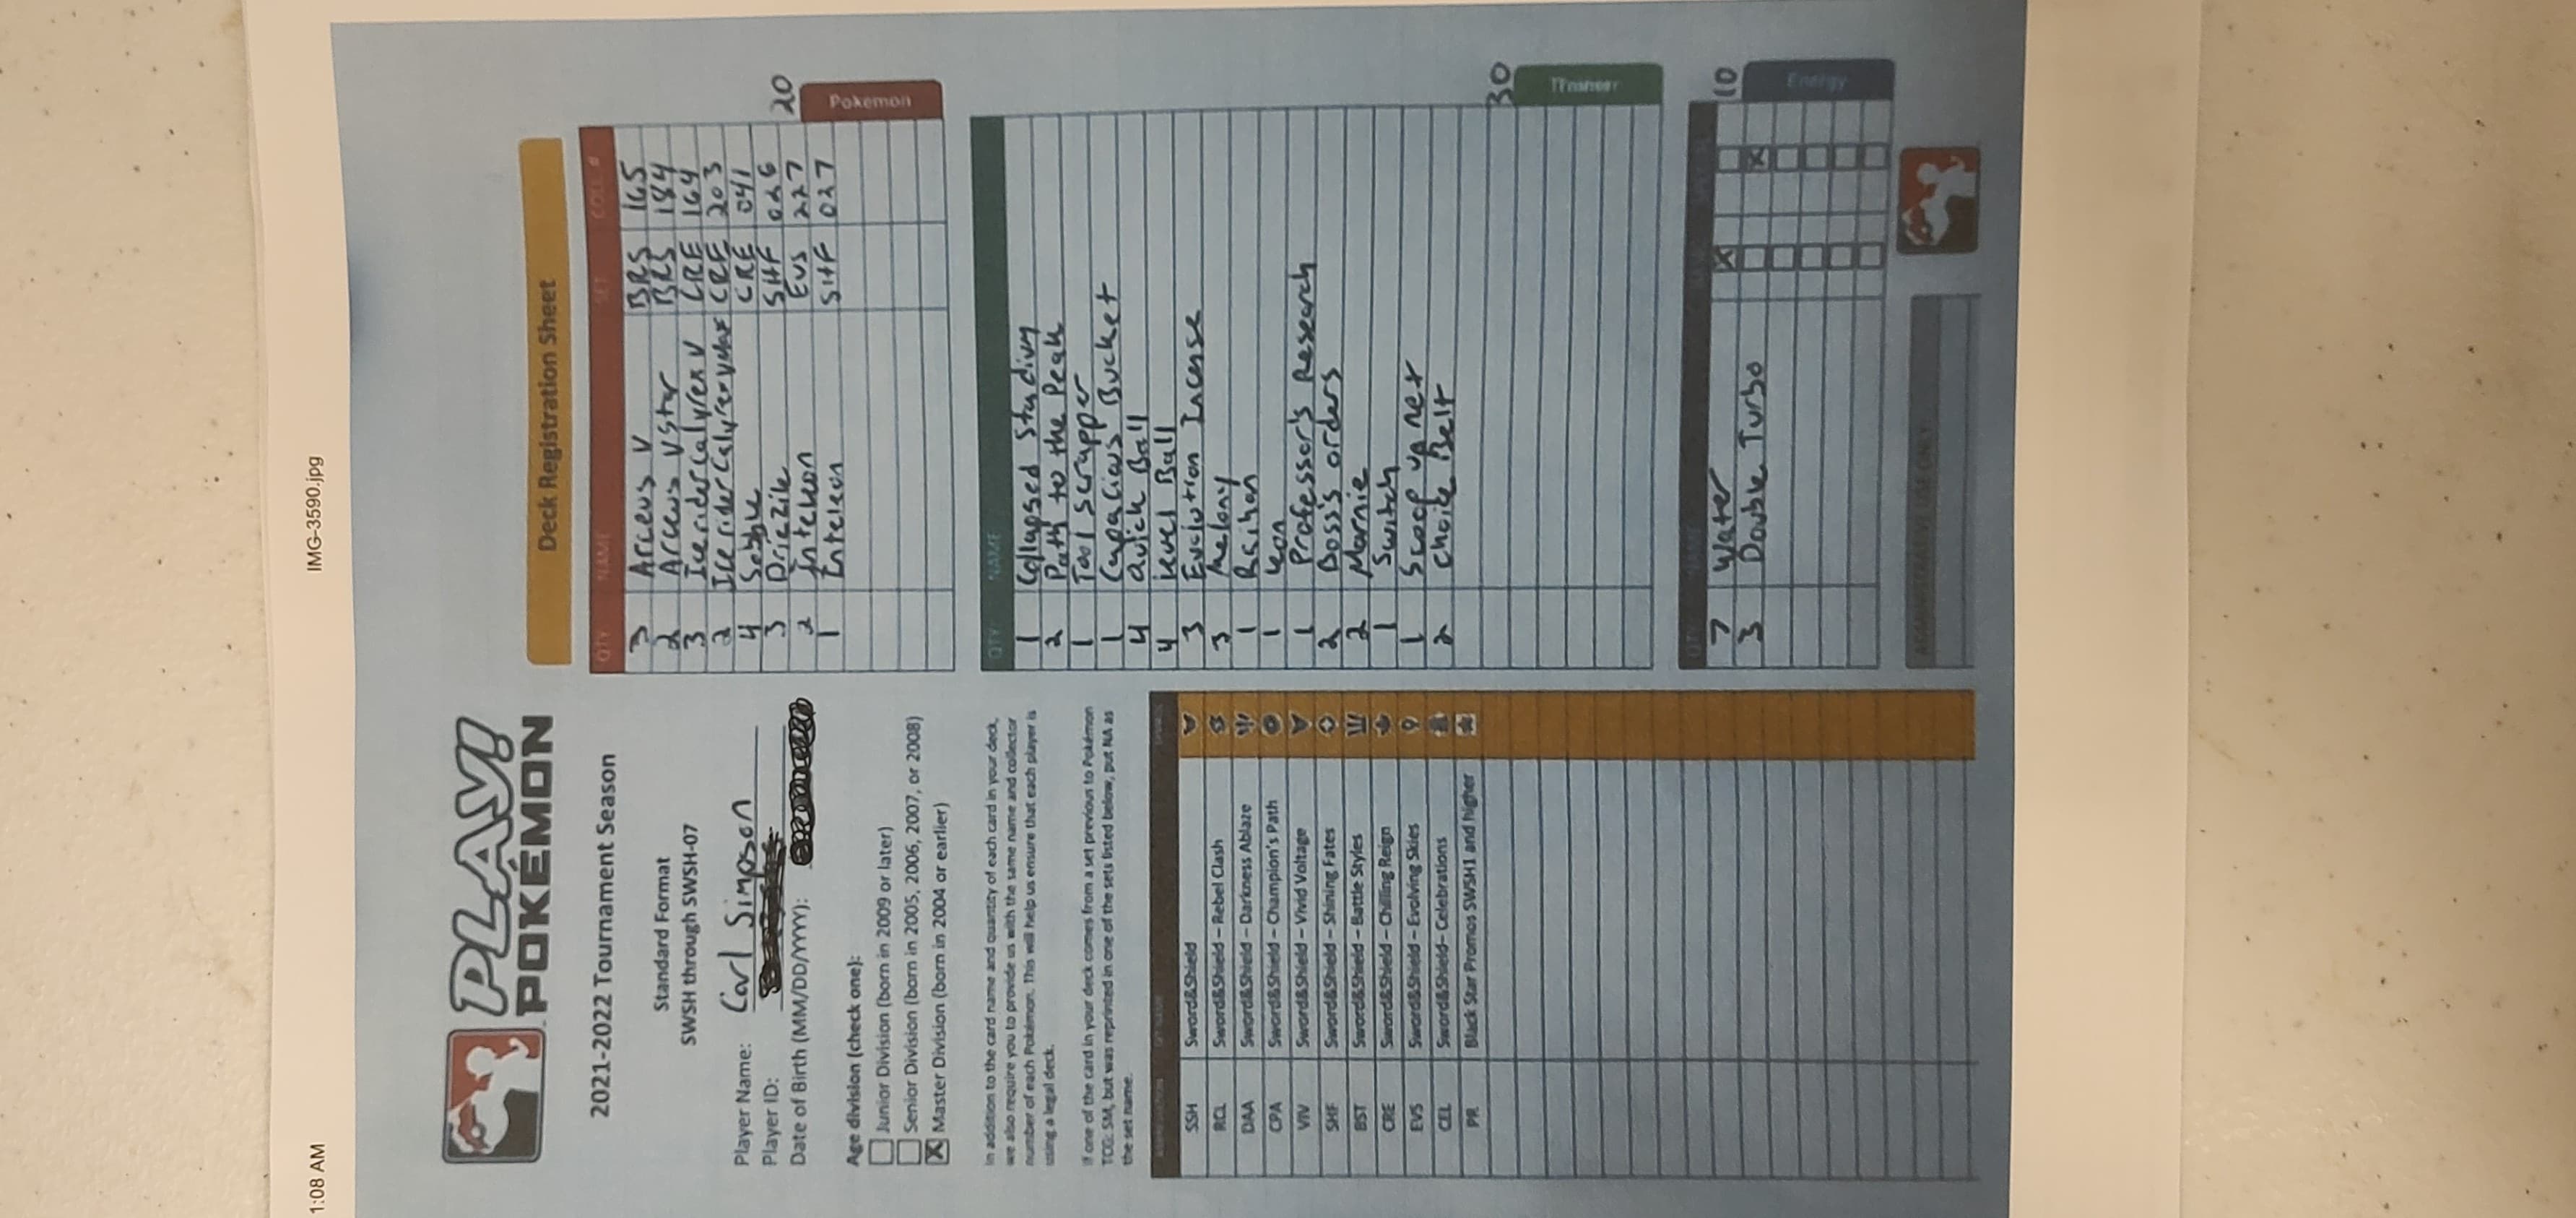 1:08 AM
IMG-3590.jpg
PLAY!
POKÉMON
2021-2022 Tournament Season
Standard Format
SWSH through SWSH-07
Player Name: Carl Simpson
Player ID:
Date of Birth (MM/DD/YYYY):
Age division (check one):
Junior Division (born in 2009 or later)
Senior Division (born in 2005, 2006, 2007, or 2008)
X Master Division (born in 2004 or earlier)
In addition to the card name and quantity of each card in your deck,
we also require you to provide us with the same name and collector
number of each Pokémon. This will help us ensure that each player is
using a legal deck.
If one of the card in your deck comes from a set previous to Pokémon
TCG: SM, but was reprinted in one of the sets listed below, put NA as
the set name.
SSH Sword&Shield
RCL Sword&Shield – Rebel Clash
DAA Sword&Shield – Darkness Ablaze
CPA Sword&Shield – Champion's Path
VIV Sword&Shield – Vivid Voltage
SHF Sword&Shield – Shining Fates
BST Sword&Shield – Battle Styles
CRE Sword&Shield – Chilling Reign
EVS Sword&Shield – Evolving Skies
CEL Sword&Shield– Celebrations
PR Black Star Promos SWSH1 and higher
Deck Registration Sheet
QTY NAME SET COLL #
3 Arceus V BRS 165
2 Arceus Vstar BRS 184
3 Ice rider Calyrex V CRE 164
2 Ice rider Calyrex vmax CRE 203
4 Sobble CRE 041
3 Drizzile SHF 026
2 Inteleon EVS 227
1 Inteleon SHF 027
20
Pokemon
QTY NAME
1 Collapsed Stadium
2 Path to the Peak
1 Tool scrapper
1 Capacious Bucket
4 Quick Ball
4 Level Ball
3 Evolution Incense
3 Melony
1 Raihan
1 Leon
1 Professor's Research
2 Boss's orders
2 Marnie
1 Switch
1 Scoop up net
2 Choice Belt
30
Trainer
NAME
7 Water X
3 Double Turbo X
10
Energy
ADMINISTRATIVE USE ONLY